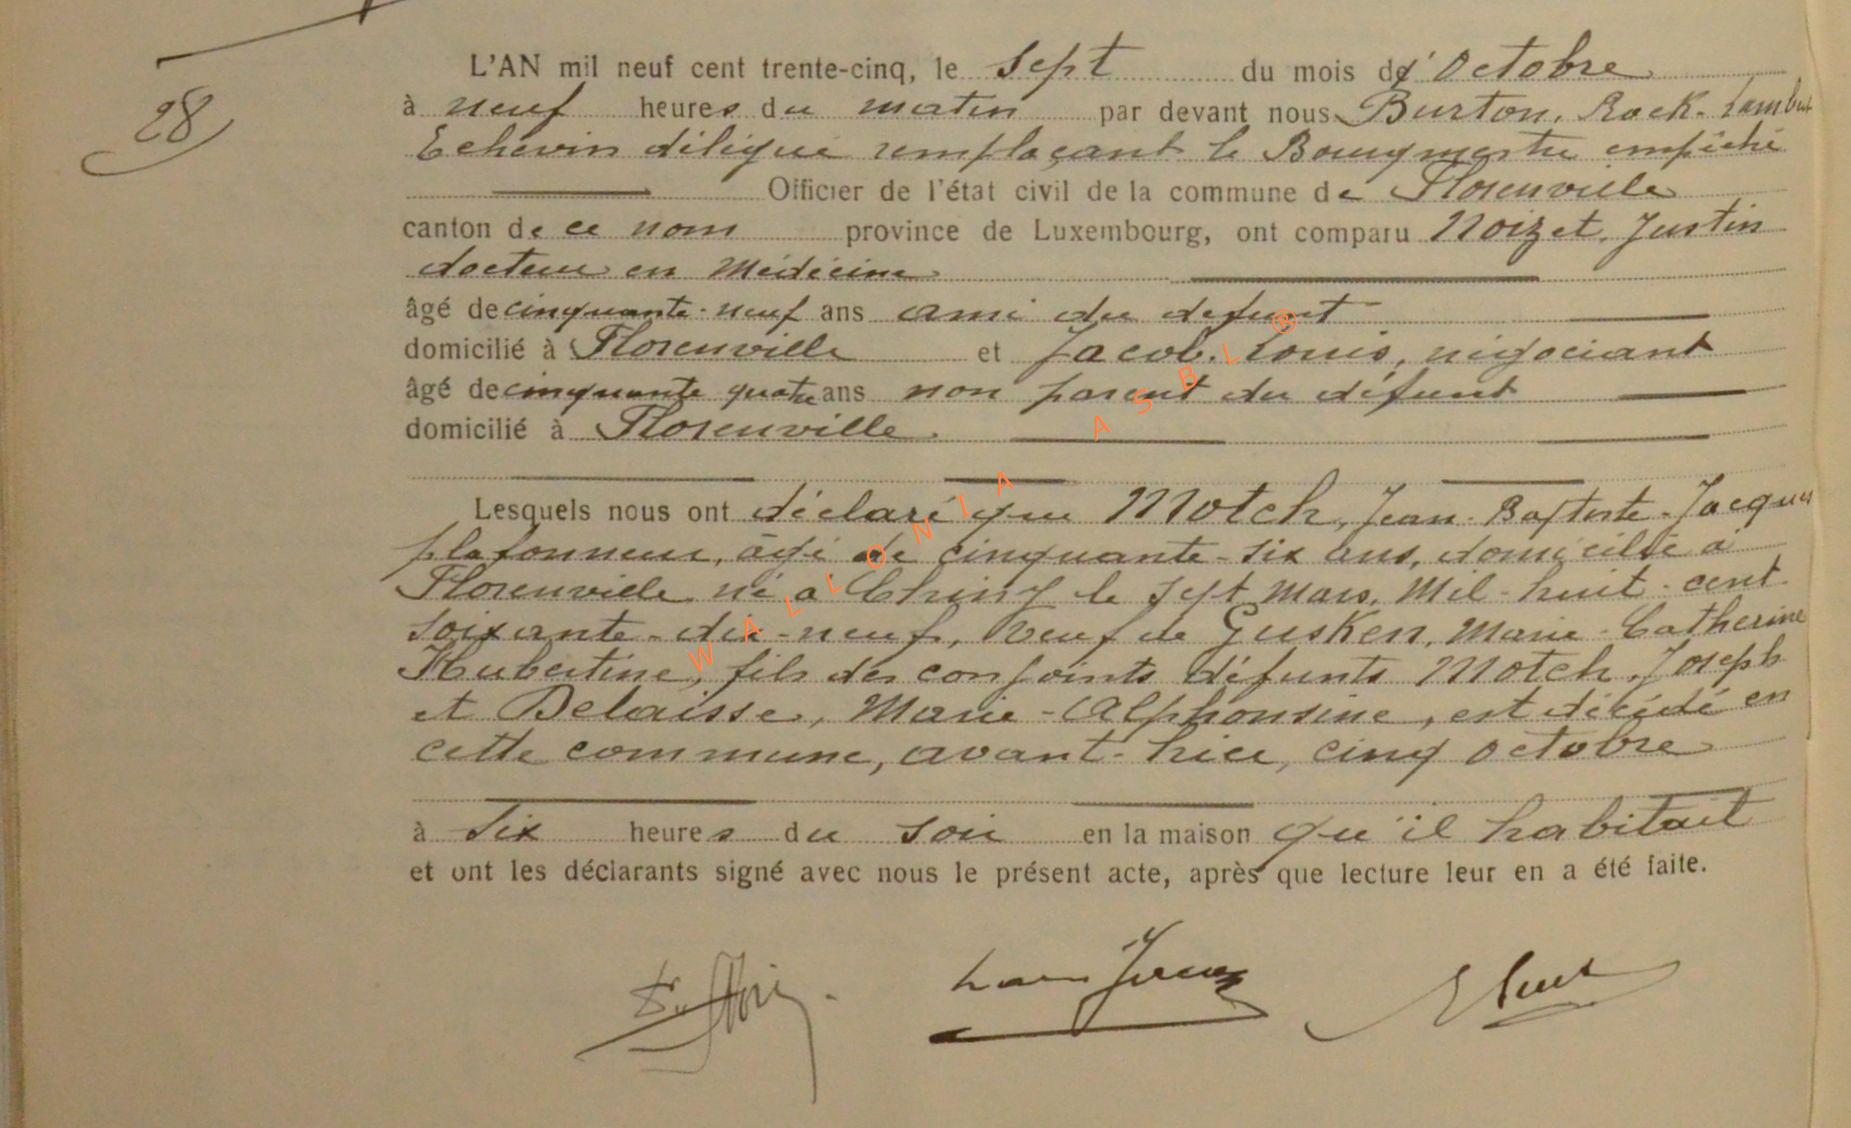 28
L'AN mil neuf cent trente-cinq, le sept du mois d'Octobre
à neuf heures du matin par devant nous Burton, Rock. Lambert
Echevin délégué remplaçant le Bourgmestre empêché
Officier de l'état civil de la commune de Florenville
canton de ce nom province de Luxembourg, ont comparu Noizet, Justin
docteur en Médécine
âgé de cinquante-neuf ans ami du défunt
domicilié à Florenville et Jacob. Louis, négociant
âgé de cinquante quatre ans non parent du défunt
domicilié à Florenville.
Lesquels nous ont déclaré que Motch, Jean-Baptiste-Jacques
plafonneur, âgé de cinquante-six ans, domicilié à
Florenville né à Chiny le sept Mars, Mil-huit-cent
soixante-dix-neuf, Veuf de Gusken, Marie-Catherine
Hubertine, fils des conjoints défunts Motch, Joseph
et Delaisse, Marie-Alphonsine, est décédé en
cette commune, avant-hier, cinq octobre
à six heures du soir en la maison qu'il habitait
et ont les déclarants signé avec nous le présent acte, après que lecture leur en a été faite.
WALLONIA ASBL ®